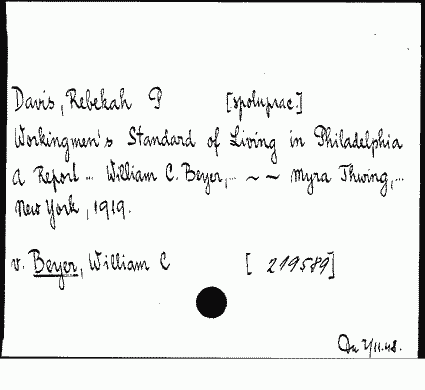 Davis, Rebekah P [spoluprac.]
Workingmen's Standard of Living in Philadelphia
A Report... William C. Beyer,... ~ ~ Myra Thwing,...
New York, 1919.
v. Beyer, William C [219589]
2/11.48.